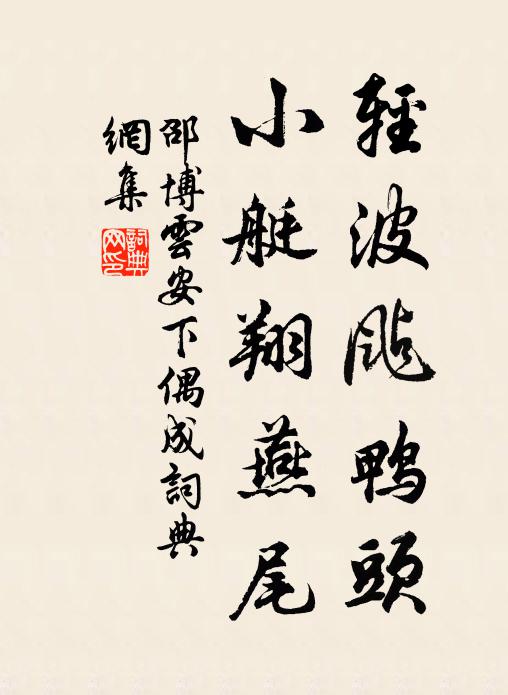 輕波颭鴨頭
小艇翔燕尾
邵博雲安下偶成詞典
網集
詞典網印